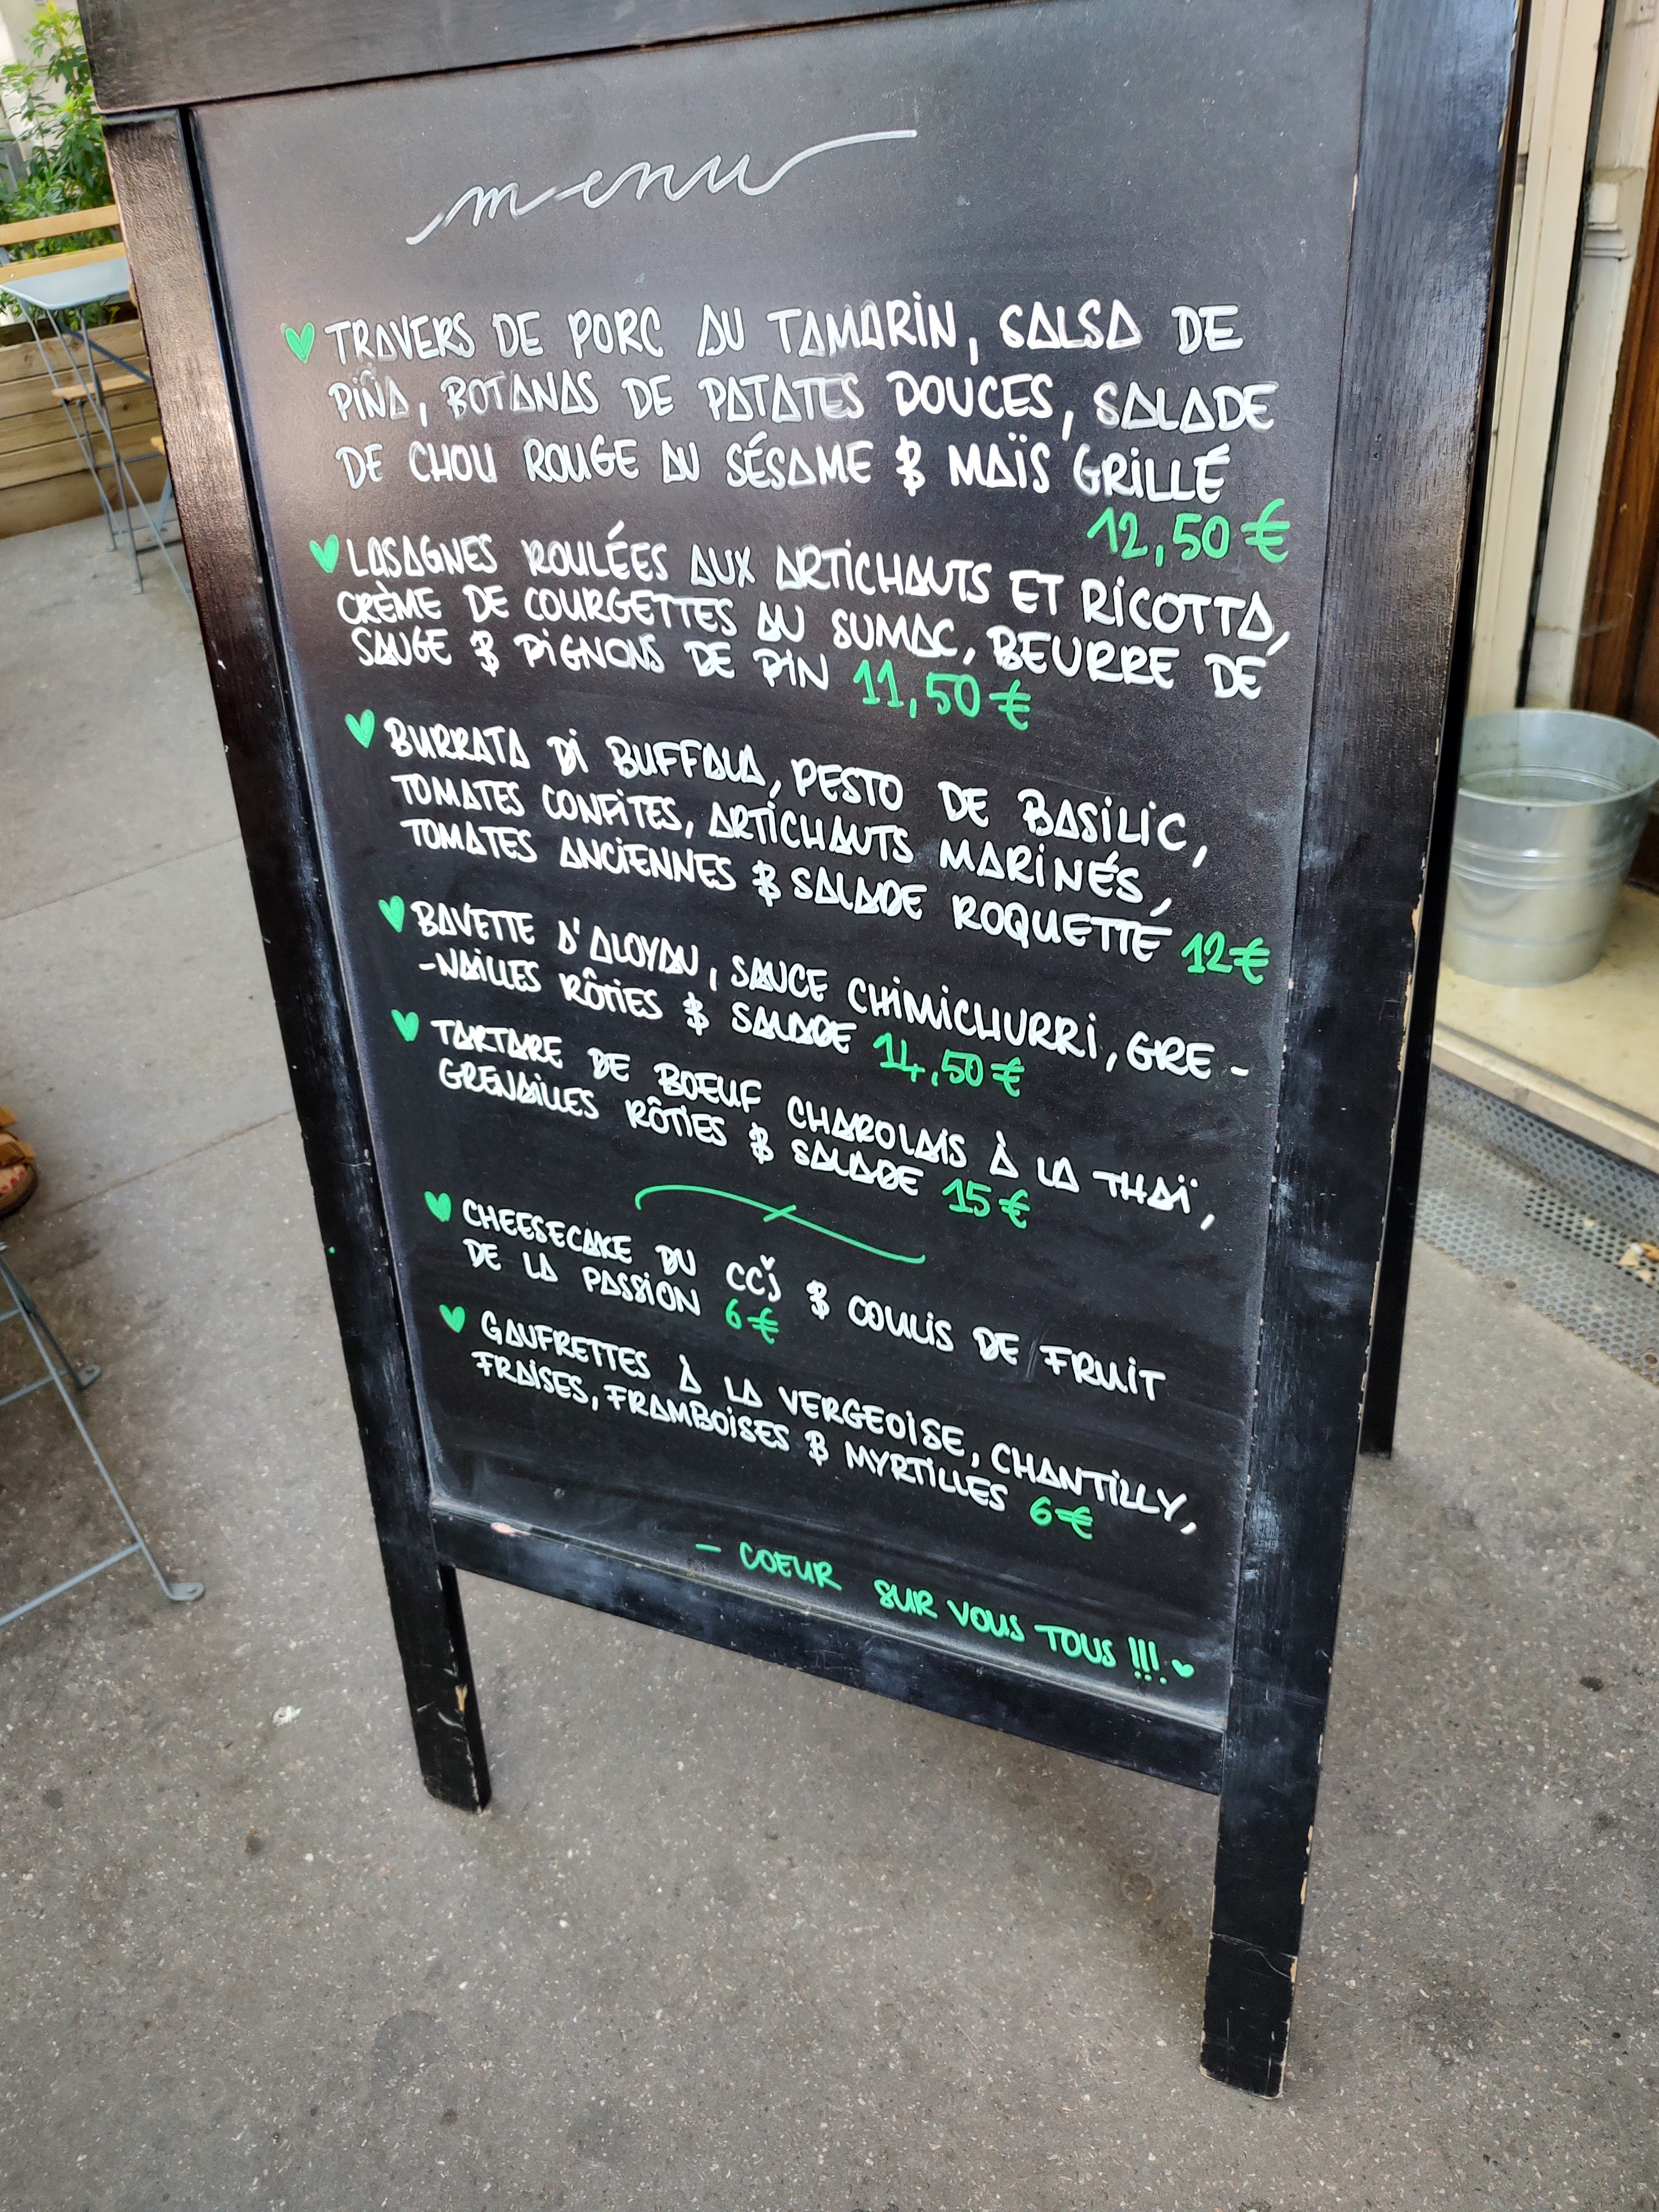 menu
TRAVERS DE PORC AU TAMARIN, SALSA DE
PIÑA, BOTANAS DE PATATES DOUCES, SALADE
DE CHOU ROUGE AU SÉSAME & MAÏS GRILLÉ
12,50€
LASAGNES ROULÉES AUX ARTICHAUTS ET RICOTTA,
CRÈME DE COURGETTES AU SUMAC, BEURRE DE
SAUGE & PIGNONS DE PIN 11,50€
BURRATA DI BUFFALA, PESTO DE BASILIC,
TOMATES CONFITES, ARTICHAUTS MARINÉS,
TOMATES ANCIENNES & SALADE ROQUETTE 12€
BAVETTE D'ALOYAU, SAUCE CHIMICHURRI, GRE-
-NAILLES RÔTIES & SALADE 14,50€
TARTARE DE BOEUF CHAROLAIS À LA THAÏ,
GRENAILLES RÔTIES & SALADE 15€
CHEESECAKE DU CCJ & COULIS DE FRUIT
DE LA PASSION 6€
GAUFRETTES À LA VERGEOISE, CHANTILLY,
FRAISES, FRAMBOISES & MYRTILLES 6€
- COEUR SUR VOUS TOUS !!!